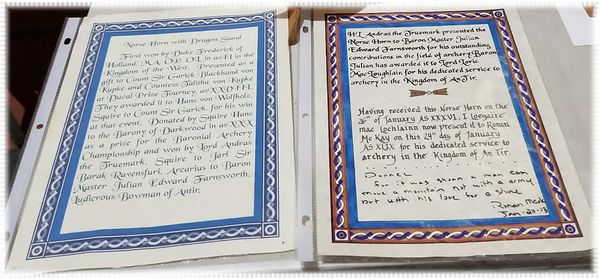 Norse Horn with Dragon Stand
First won by Duke Frederick of
Holland, M.A, O.P, O.L in as VI in the
Kingdom of the West. Presented as a
gift to Count Sir Garick
Kopke and Countess Talitha von Kopke
as Ducal Prize Tourney, as
They awarded it to Hans von Wolfholt,
Squire to Count Sir Garick, for his win
at that event. Donated by Squire Hans
to the Barony of Darkwood in as XXX
as a prize for the Baronial Archery
Championship and won by Lord Andras
the Truemark, Squire to Jarl Sir
Barak Ravensfuri, Arcarius to Baron
Master Julian Edward Farnsworth,
Ludicrous Bowman of Antir.
H.L. Andras the Truemark presented the
Norse Horn to Baron Master Julian
Edward Farnsworth for his outstanding
contributions in the field of archery. Baron
Julian has awarded it to Lord Loric
MacLoughlain for his dedicated service to
archery in the Kingdom of An Tir.
Having received this Norse Horn on the
January AS XXXVI, I Loegaire
mac Lochlainn now present it to Ronan
McKay on this 24th day of January
AS XLIX for his dedicated service to
archery in the Kingdom of An Tir.
for it was given a man can
move a mountain not with a army
but with his love for a
Ronan
Jan-20-18